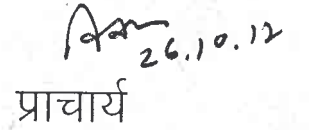 26.10.12
प्राचार्य